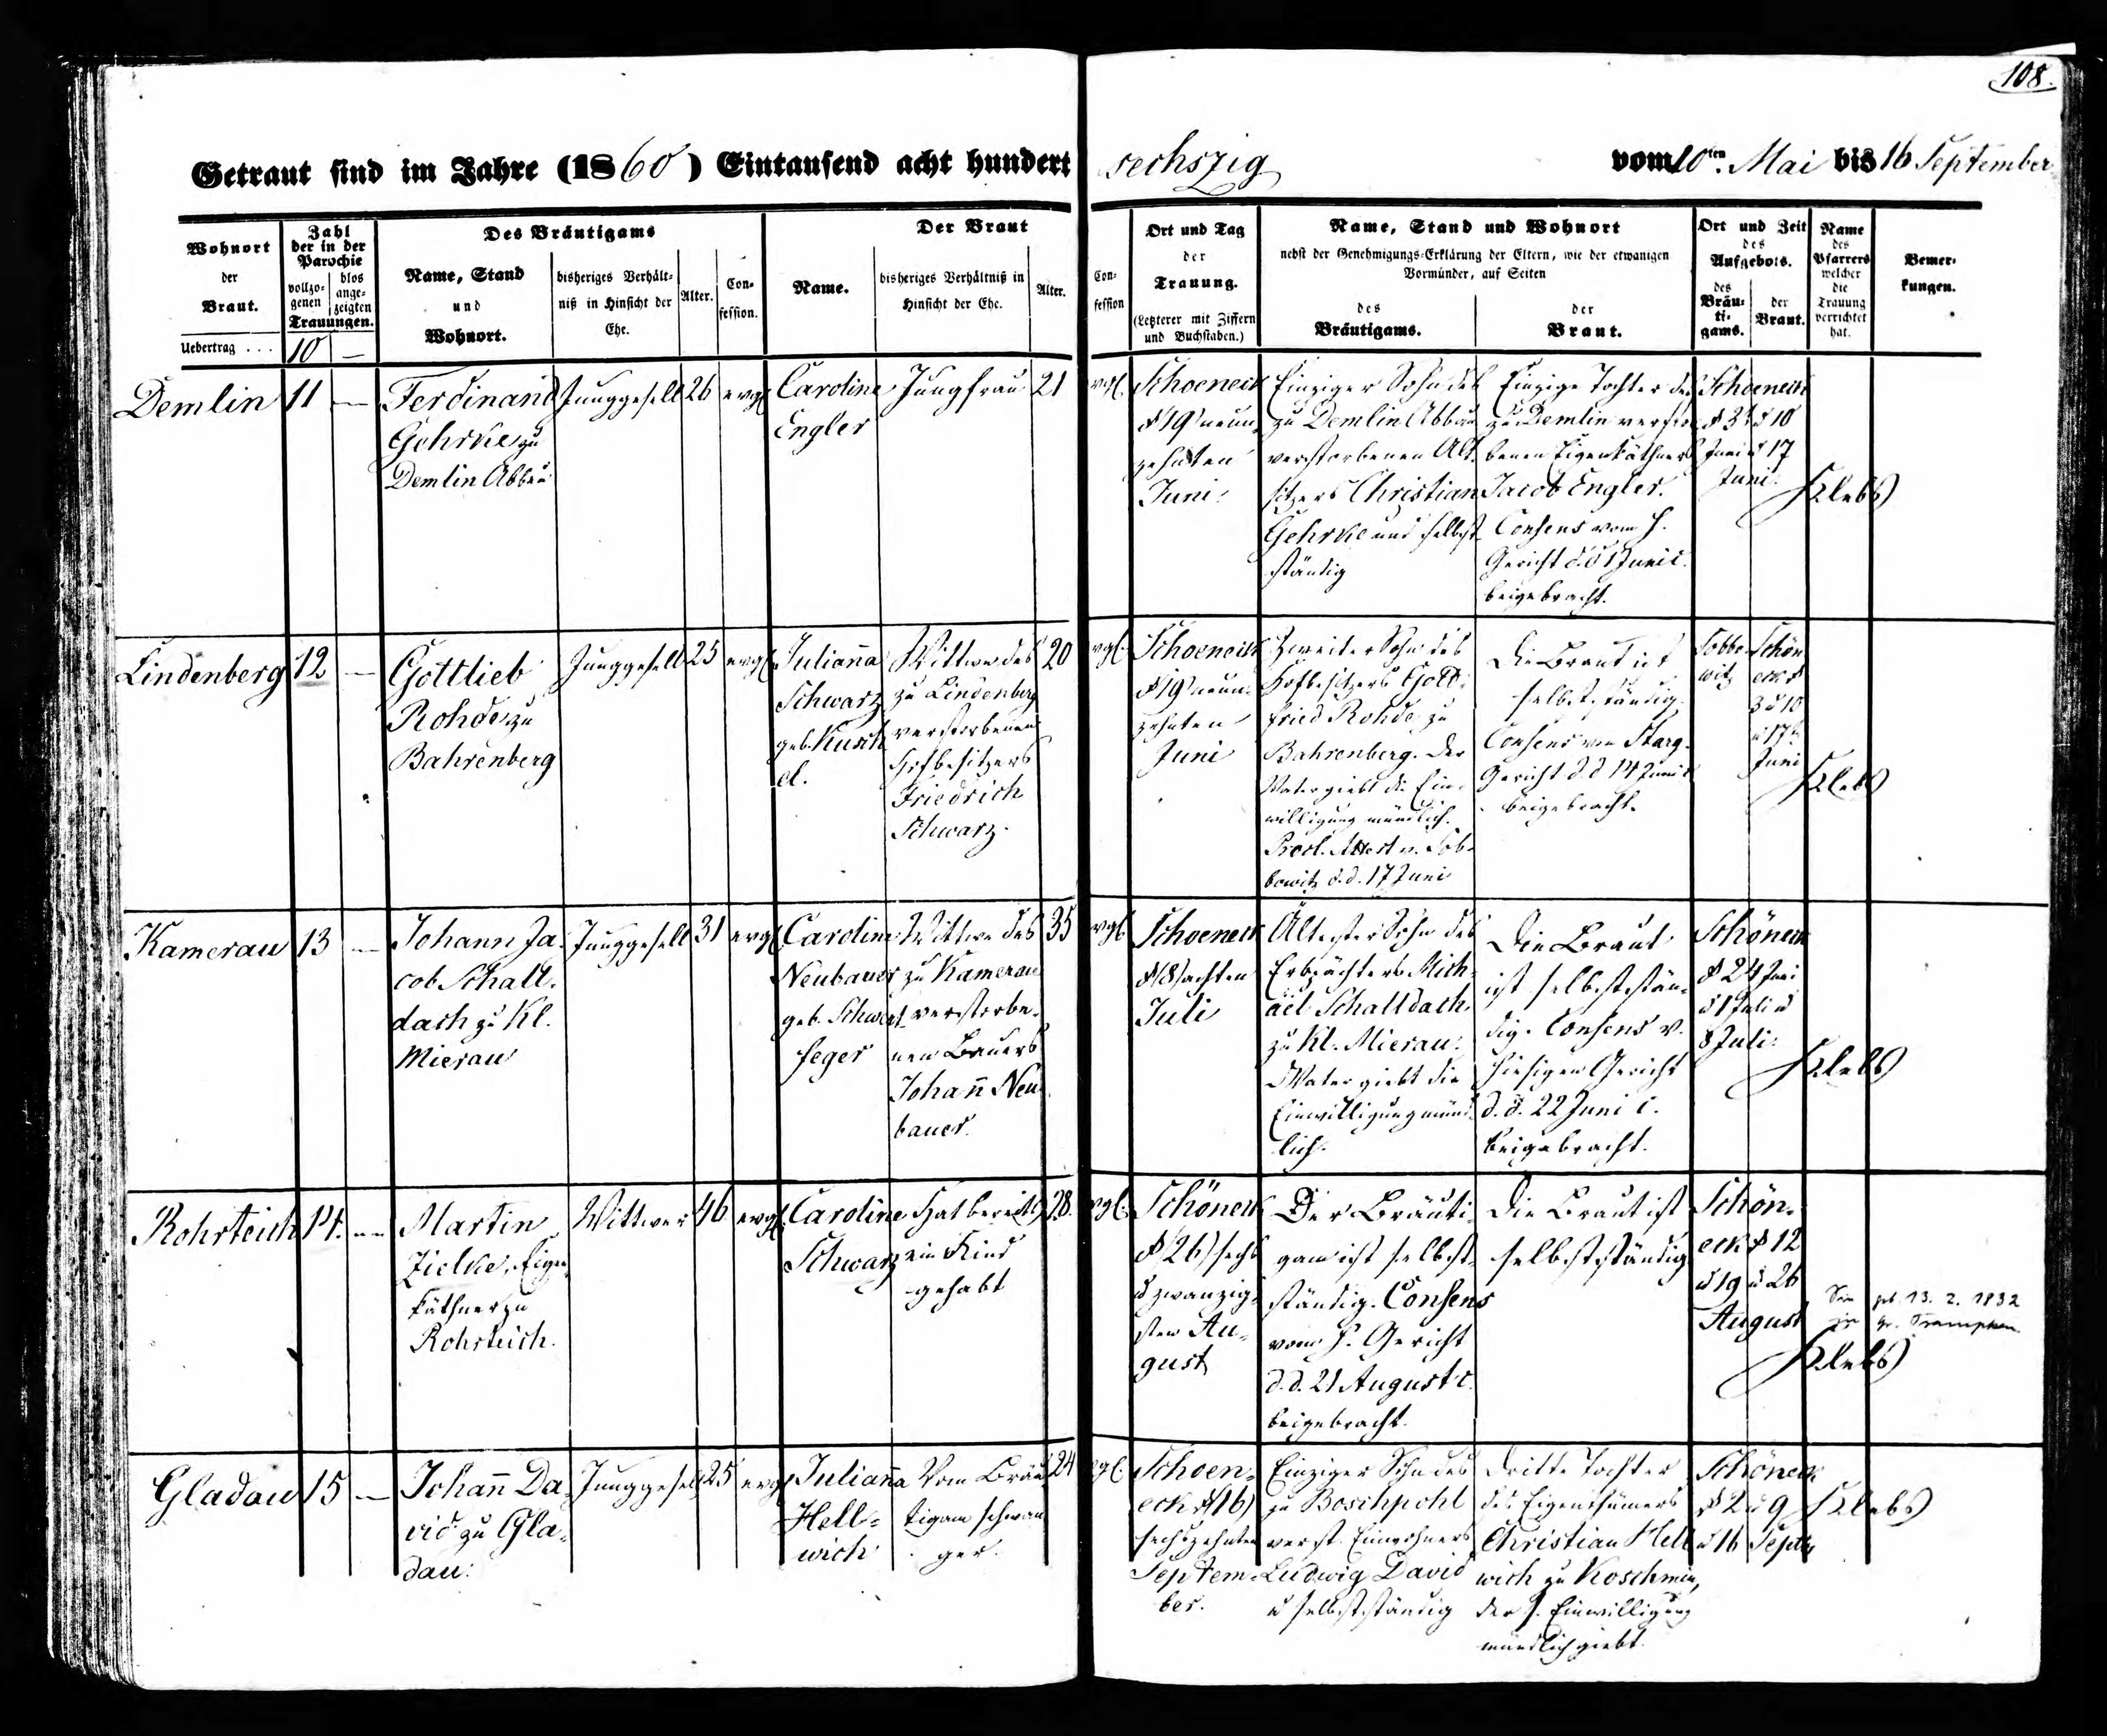 108.
Getraut sind im Jahre (1860) Eintausend acht hundert sechszig vom 10ten Mai bis 16 September
Wohnort
der
Braut.
Zahl
der in der
Parochie
vollzo-
genen
blos
ange-
zeigten
Trauungen.
Des Bräutigams
Name, Stand
und
Wohnort.
bisheriges Verhält-
niß in Hinsicht der
Ehe.
Alter.
Con-
fession.
Der Braut
Name.
bisheriges Verhältniß in
Hinsicht der Ehe.
Alter.
Con-
fession
Ort und Tag
der
Trauung.
(Letzterer mit Ziffern
und Buchstaben.)
Name, Stand und Wohnort
nebst der Genehmigungs-Erklärung der Eltern, wie der etwanigen
Vormünder, auf Seiten
des
Bräutigams.
der
Braut.
Ort und Zeit
des
Aufgebots.
des
Bräu-
ti-
gams.
der
Braut.
Name
des
Pfarrers
welcher
die
Trauung
verrichtet
hat.
Bemer-
kungen.
Uebertrag . . . 10 —
Demlin
11
—
Ferdinand
Gehrke zu
Demlin Abbau
Junggesell
26
evgl
Caroline
Engler
Jungfrau
21
evgl.
Schoeneck
d 19 neun-
zehnten
Juni.
Einziger Sohn des
zu Demlin Abbau
verstorbenen Alt-
sitzers Christian
Gehrke und selbst-
ständig
Einzige Tochter des
zu Demlin verstor-
benen Eigenkäthners
Jacob Engler.
Consens vom h.
Gericht d.d 1 Juni c.
beigebracht.
Schoeneck
d 3 t u 10
Juni u 17
Juni.
Klebs
Lindenberg
12
—
Gottlieb
Rohde zu
Bahrenberg
Junggesell
25
evgl
Julianna
Schwarz
geb. Kusch
el.
Wittwe des
zu Lindenberg
verstorbenen
Hofbesitzers
Friedrich
Schwarz.
20
evgl.
Schoeneck
d 19 neun-
zehnten
Juni
Zweiter Sohn des
Hofbesitzers Gott-
fried Rohde zu
Bahrenberg. Der
Vater giebt die Ein-
willigung mündlich.
Procl. Attest v. Sob-
bowitz d.d. 17 Juni
Die Braut ist
selbstständig.
Consens vom Starg.
Gericht d.d 14 Juni c
beigebracht.
Sobbo
witz
Schön
eck d
3 u 10
u 17t.
Juni
Klebs
Kamerau
13
—
Johann Ja-
cob Schall-
dach zu Kl.
Mierau
Junggesell
31
evgl
Caroline
Neubauer
geb. Schwert
feger
Wittwe des
zu Kamerau
verstorbe-
nen Bauers
Johann Neu-
bauer.
35
evgl
Schoeneck
d (8) achten
Juli
Ältester Sohn des
Erbpächters Mich-
ael Schalldach
zu Kl. Mierau.
D Vater giebt die
Einwilligung münd-
lich.
Die Braut
ist selbststän-
dig. Consens v.
hiesigen Gericht
d.d. 22 Juni c.
beigebracht.
Schöneck
d 24 Juni
d 1 Juli u
8 Juli.
Klebs
Rohrteich
14.
—
Martin
Zielke, Eigen-
käthner zu
Rohrteich.
Wittwer
46
evgl.
Caroline
Schwarz
Hat bereits
ein Kind
gehabt
28.
evgl.
Schöneck
d (26) sechs
u zwanzig-
sten Au-
gust
Der Bräuti-
gam ist selbst-
ständig. Consens
vom h. Gericht
d.d. 21 August c.
beigebracht.
Die Braut ist
selbstständig
Schön-
eck d 12
u 19 u 26
August
geb. 13. 2. 1832
in Gr. Trampken
Klebs
Gladau
15
—
Johann Da-
vid zu Gla-
dau.
Junggesell
25
evgl
Julianna
Hell-
wich
Vom Bräu-
tigam schwan
ger.
24
evgl.
Schoen-
eck d (16)
sechszehnten
Septem-
ber.
Einziger Sohn des
zu Boschpohl
verst. Einwohners
Ludwig David
u selbstständig
Dritte Tochter
des Eigenthümers
Christian Hell
wich zu Koschmin,
der s. Einwilligung
mündlich giebt.
Schöneck
d 2 u 9
u 16 Septb
Klebs